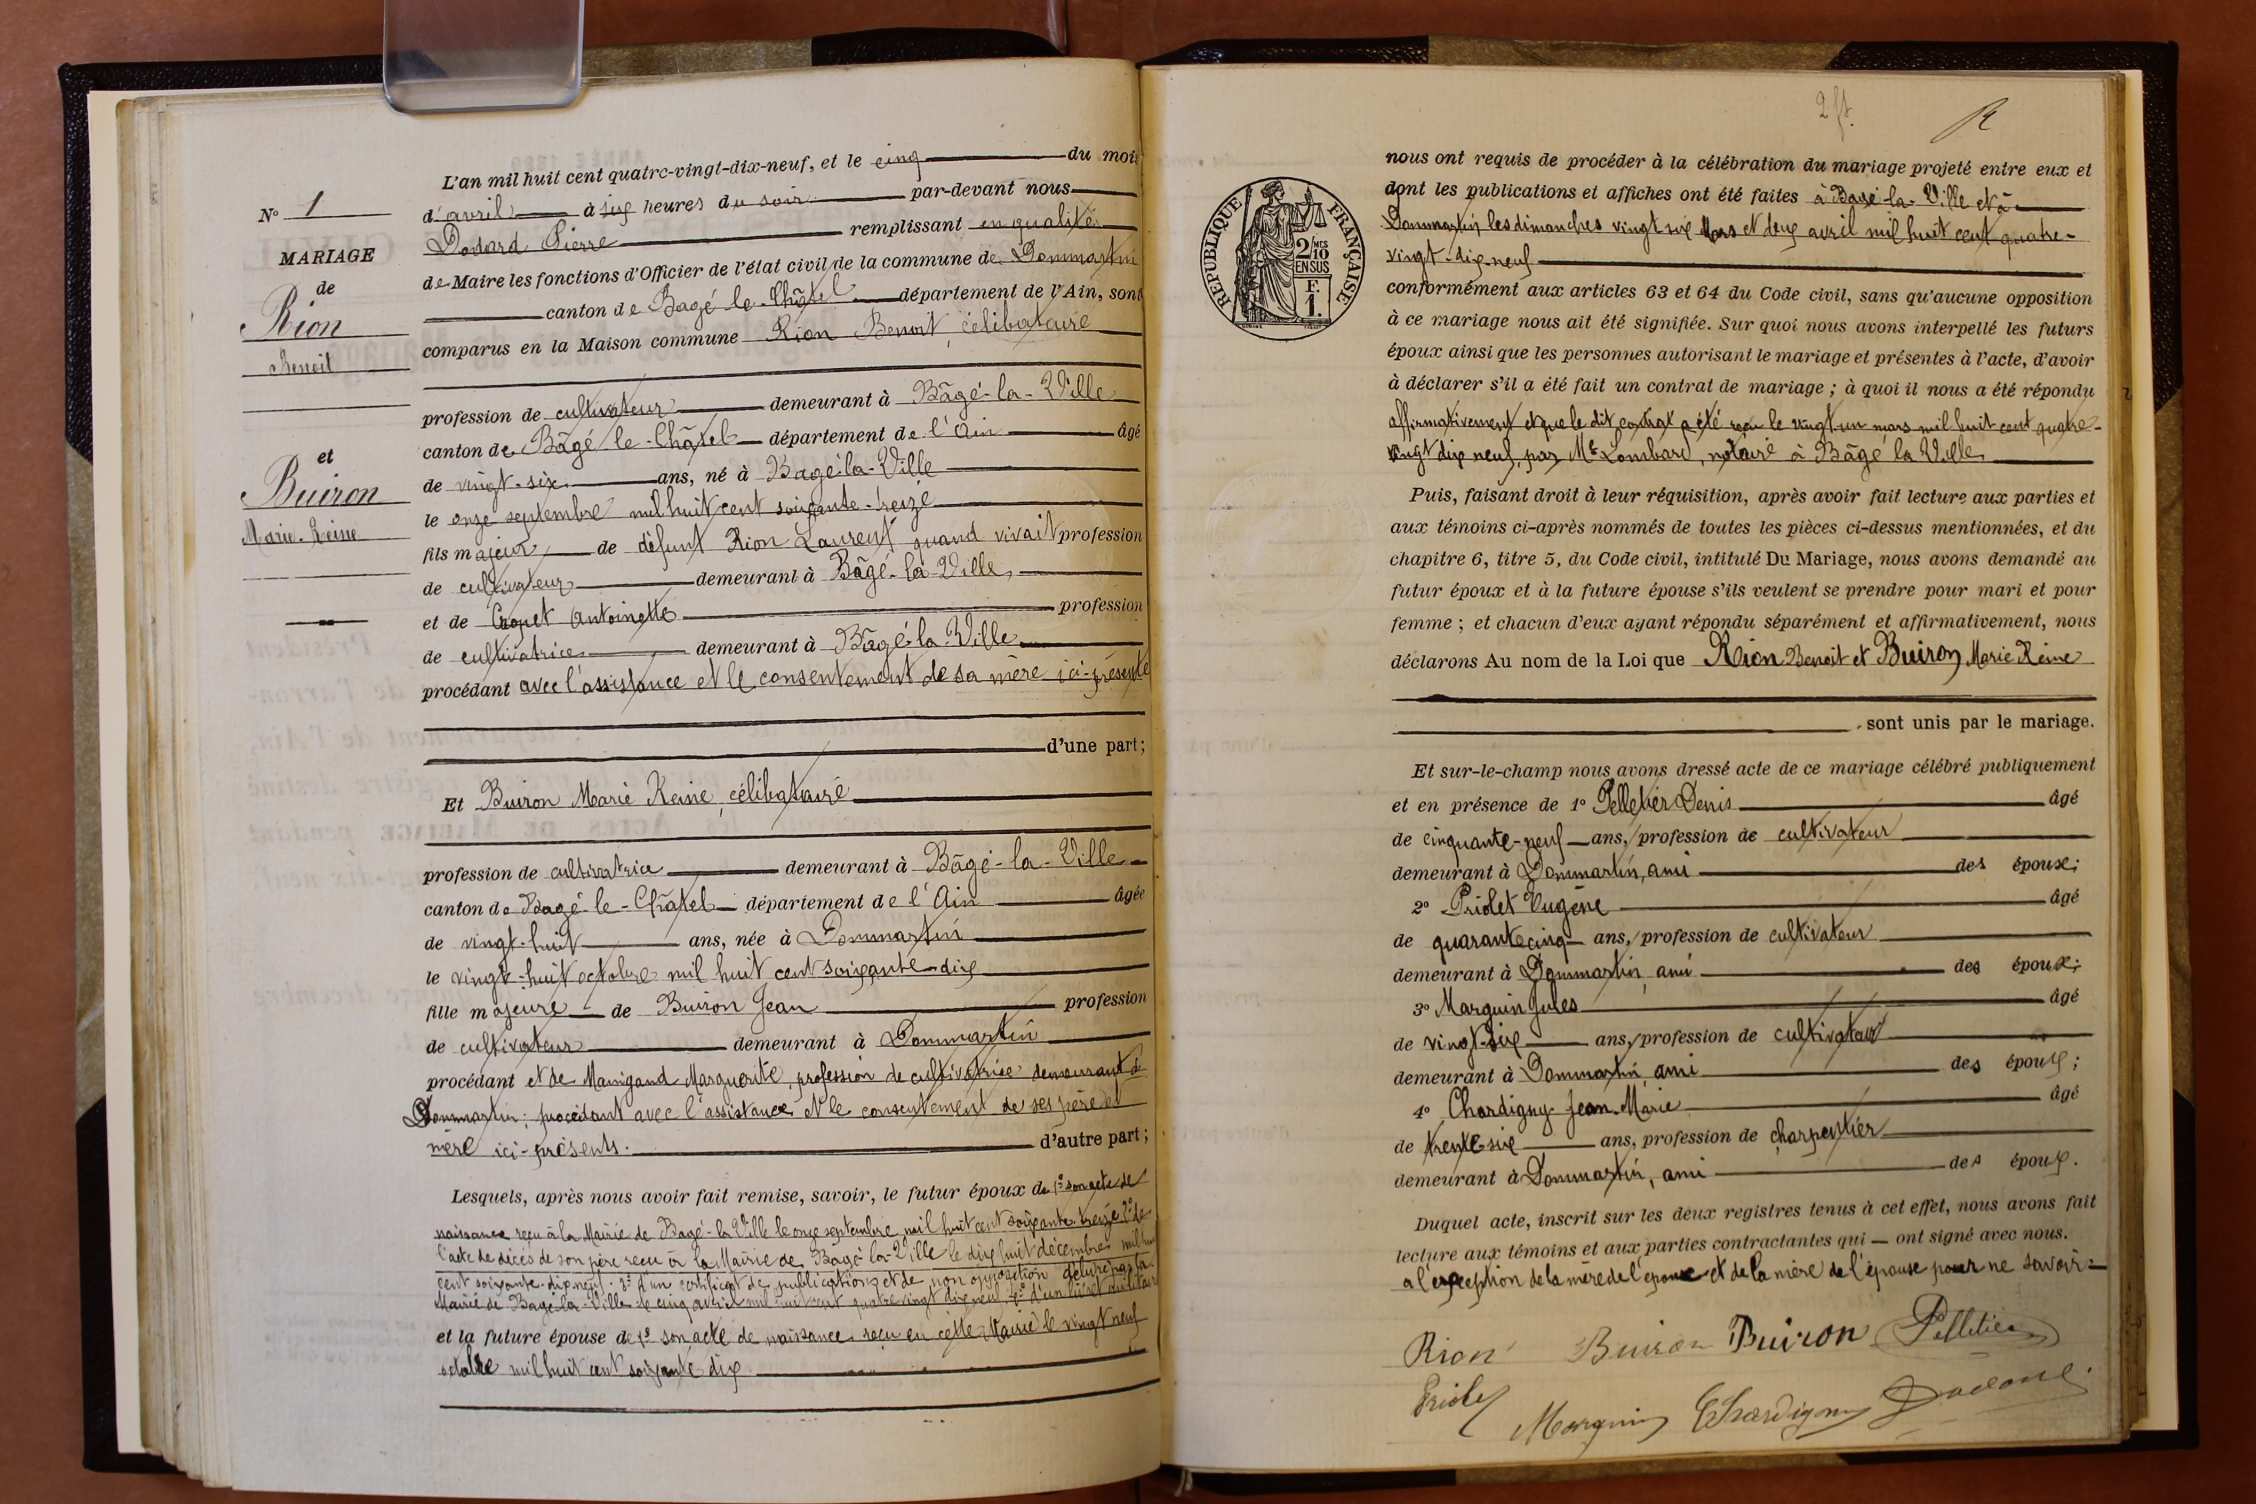 L'an mil huit cent quatre-vingt-dix-neuf, et le cinq du mois
d'avril à six heures du soir par-devant nous
Pierre remplissant en qualité
de Maire les fonctions d'Officier de l'état civil de la commune de Dommartin
canton de Bagé-le-Châtel département de l'Ain, sont
comparus en la Maison commune Rion Benoit, célibataire
profession de cultivateur demeurant à Bâgé-la-Ville
canton de Bâgé-le-Châtel département de l'Ain âgé
de vingt-six ans, né à Bagé-la-Ville
le onze septembre mil huit cent soixante-treize
fils majeur de défunt Rion Laurent quand vivait profession
de cultivateur demeurant à Bâgé-la-Ville,
et de Antoinette profession
de cultivatrice demeurant à Bâgé-la-Ville
procédant avec l'assistance et le consentement de sa mère ici-présente
d'une part;
Et Buiron Marie Reine, célibataire
profession de cultivatrice demeurant à Bâgé-la-Ville
canton de Bagé-le-Châtel département de l'Ain âgée
de vingt-huit ans, née à Dommartin
le vingt-huit octobre mil huit cent soixante-dix
fille majeure de Buiron Jean profession
de cultivateur demeurant à Dommartin
procédant et de Manigand Marguerite, profession de cultivatrice demeurant à
Dommartin; procédant avec l'assistance et le consentement de ses père et
mère ici-présents. d'autre part;
Lesquels, après nous avoir fait remise, savoir, le futur époux de 1° son acte de
naissance reçu à la Mairie de Bagé-la-Ville le onze septembre mil huit cent soixante treize 2° de
l'acte de décès de son père reçu à la Mairie de Bagé-la-Ville le dix huit décembre mil huit
cent soixante-dix neuf. 3° d'un certificat de publications et de non opposition délivré par la
Mairie de Bagé-la-Ville le cinq avril mil huit cent quatre vingt dix neuf 4° d'un livret militaire
et la future épouse de 1° son acte de naissance reçu en cette Mairie le vingt neuf
octobre mil huit cent soixante dix
N° 1
MARIAGE
de
Rion
Benoit
et
Buiron
Marie-Reine
R
RÉPUBLIQUE FRANÇAISE
2/10 MES
EN SUS
F.
1.
nous ont requis de procéder à la célébration du mariage projeté entre eux et
dont les publications et affiches ont été faites à Bagé-la-Ville et à
Dommartin les dimanches vingt six Mars et deux avril mil huit cent quatre-
vingt-dix-neuf
conformément aux articles 63 et 64 du Code civil, sans qu'aucune opposition
à ce mariage nous ait été signifiée. Sur quoi nous avons interpellé les futurs
époux ainsi que les personnes autorisant le mariage et présentes à l'acte, d'avoir
à déclarer s'il a été fait un contrat de mariage; à quoi il nous a été répondu
affirmativement et que le dit contrat a été reçu le vingt-un mars mil huit cent quatre-
vingt dix neuf, par Me Lombard, notaire à Bâgé la Ville
Puis, faisant droit à leur réquisition, après avoir fait lecture aux parties et
aux témoins ci-après nommés de toutes les pièces ci-dessus mentionnées, et du
chapitre 6, titre 5, du Code civil, intitulé Du Mariage, nous avons demandé au
futur époux et à la future épouse s'ils veulent se prendre pour mari et pour
femme; et chacun d'eux ayant répondu séparément et affirmativement, nous
déclarons Au nom de la Loi que Rion Benoit et Buiron Marie Reine
sont unis par le mariage.
Et sur-le-champ nous avons dressé acte de ce mariage célébré publiquement
et en présence de 1° Pelletier Denis âgé
de cinquante-neuf ans, profession de cultivateur
demeurant à Dommartin, ami des époux;
2° Priolet Eugène âgé
de quarante cinq ans, profession de cultivateur
demeurant à Dommartin, ami des époux;
3° Marguin Jules âgé
de vingt-six ans, profession de cultivateur
demeurant à Dommartin, ami des époux;
4° Chardigny Jean-Marie âgé
de trente six ans, profession de charpentier
demeurant à Dommartin, ami des époux.
Duquel acte, inscrit sur les deux registres tenus à cet effet, nous avons fait
lecture aux témoins et aux parties contractantes qui — ont signé avec nous.
à l'exception de la mère de l'époux et de la mère de l'épouse pour ne savoir
Rion Buiron Buiron Pelletier
Priolet
Marguin Chardigny